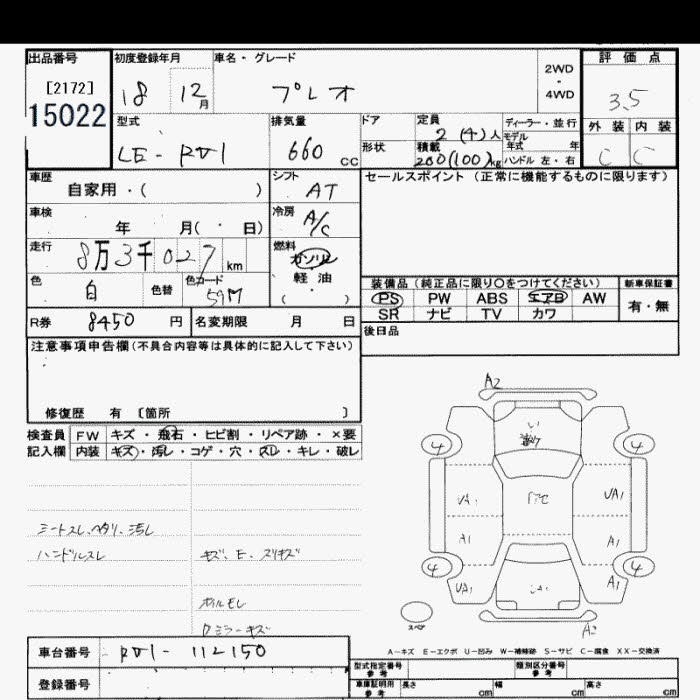 出品番号 初度登録年月 車名・グレード 2WD・4WD 評価点
[2172] 18 12月 プレオ 3.5
15022
型式 排気量 ドア 定員 2(4)人 ディーラー・並行 外装 内装
モデル年式 年
LE-RV1 660cc 形状 積載 200(100)kg ハンドル 左・右 C C
車歴 自家用・( ) シフト AT セールスポイント(正常に機能するものに限ります)
車検 年 月(・日) 冷房 A/C
走行 8万3千027km 燃料 ガソリン
軽油
( )
色 白 色替 色コード 59M
装備品(純正品に限り○をつけてください) 新車保証書
PS PW ABS エアB AW 有・無
SR ナビ TV カワ
R券 8450円 名変期限 月 日 後日品
注意事項申告欄(不具合内容等は具体的に記入して下さい)
修復歴 有 〔箇所 〕
検査員 FW キズ・飛石・ヒビ割・リペア跡・×要
記入欄 内装 キズ・汚レ・コゲ・穴・スレ・キレ・破レ
シートスレ、ヘタリ、汚レ
ハンドルスレ キズ、E、スリキズ
オイルモレ
ミラーキズ
A2
4 4
UA1 UA1
A1 A1
4 4
UA1 A1
スペア A2
A-キズ E-エクボ U-凹み W-補修跡 S-サビ C-腐食 XX-交換済
車台番号 RV1-112150
登録番号
型式指定番号 参考 類別区分番号 参考
車庫証明用 参考 長さ cm 幅 cm 高さ cm